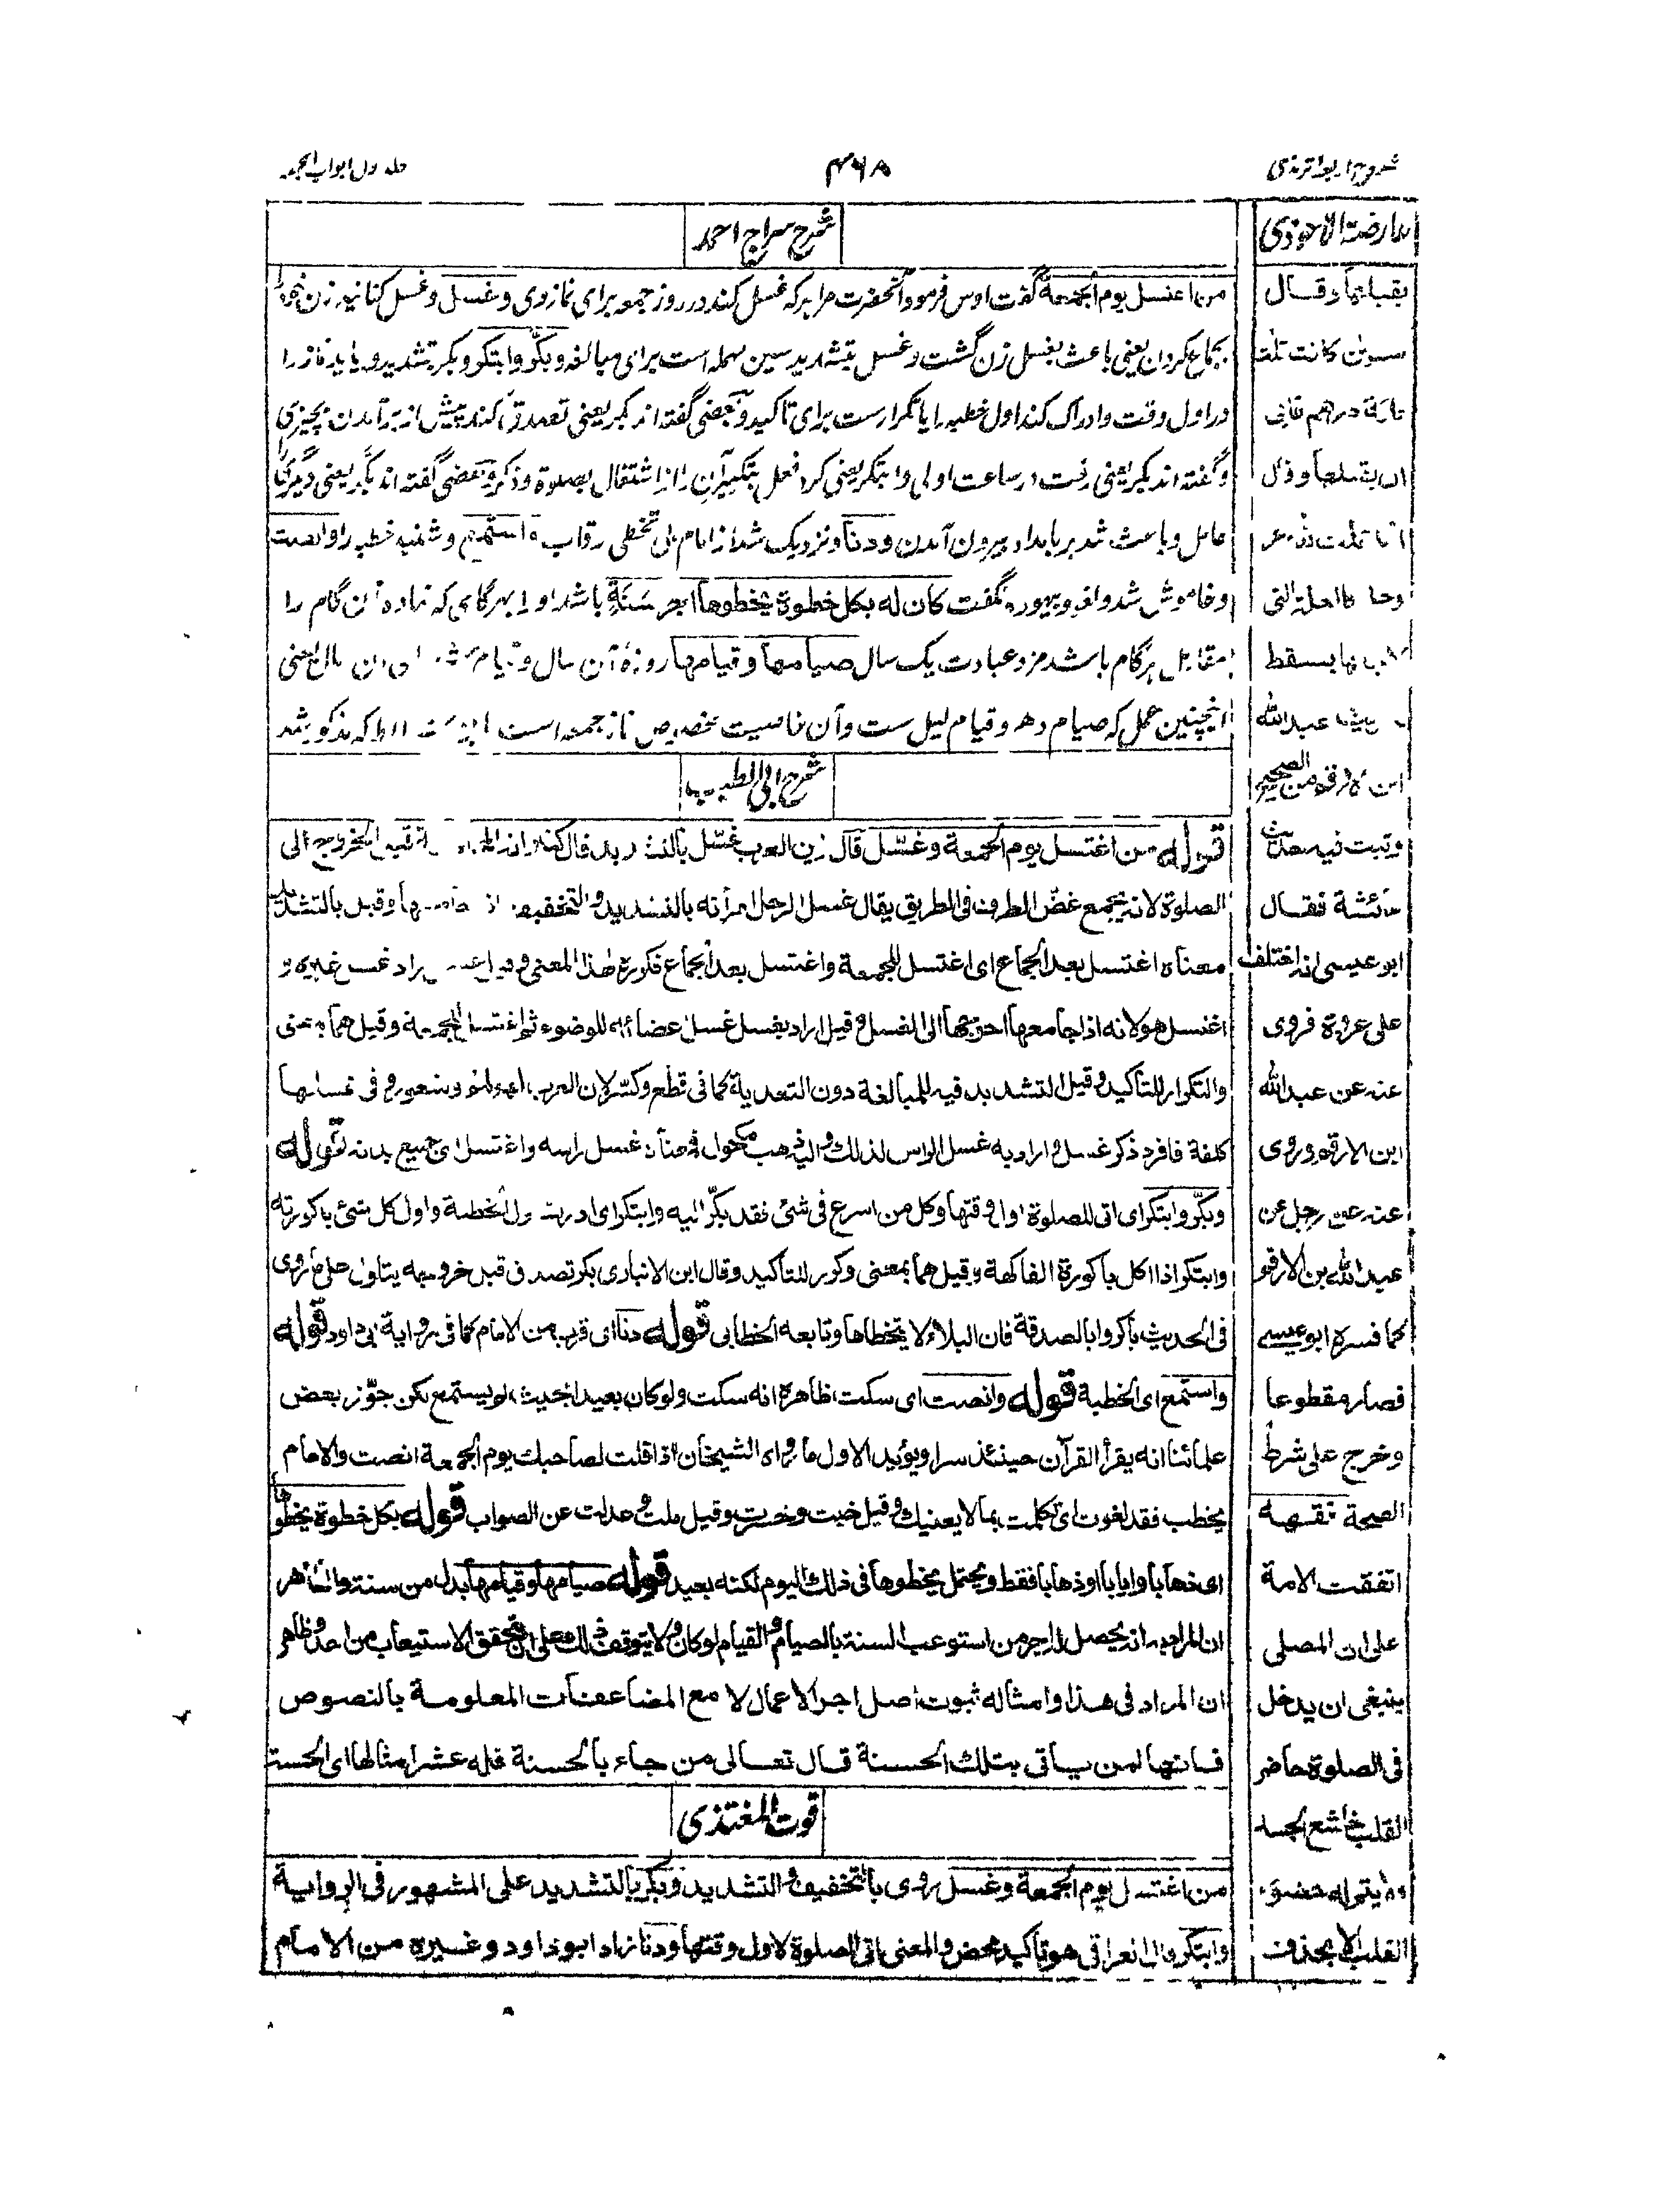 شروح اربعه ترمذی
۴۶۸
جلد اول ابواب الجمعه
عارضة الاحوذی
بقباءها وقال
كانت
ان يقطعها و
التی
بسقط
عبد الله
ابن الارقم من الصحيح
وثبت فيه حديث
عائشة فقال
ابو عيسى انه اختلف
على عروة فروى
عنه عن عبد الله
ابن الارقم وروى
عنه عن رجل عن
عبد الله بن الارقم
كما فسره ابو عيسى
فصار مقطوعا
وخرج على شرط
الصحة تفقهه
اتفقت الامة
على ان المصلى
ينبغى ان يدخل
فى الصلوة حاضر
القلب خاشع
القلب الا بحذف
شرح سراج احمد
من اغتسل يوم الجمعة گفت اوس فرمود آنحضرت مرا هر که غسل کند در روز جمعه برای نماز وی وغسل وغسل کنانید زن خود را
بجماع کردن یعنی باعث بغسل زن گشت وغسل بتشدید سین مهمله است برای مبالغه وبكّر وابتكر وبکر بتشدید دریابد نماز را
در اول وقت وادراک کند اول خطبه را یا تکرارست برای تاکید وبعضی گفته اند بکر یعنی تصدق کند پیش از برآمدن بچیزی
وگفته اند بکر یعنی رفت در ساعت اولی وابتکر یعنی کرد فعل مبتکران را از اشتغال بصلوة وذکر وبعضی گفته اند بکر یعنی دیگری را
حامل وباعث شد بر بامداد بیرون آمدن ودنا ونزدیک شد از امام بی تخطی رقاب واستمع وشنید خطبه را وانصت
وخاموش شد ولغو وبیهوده نگفت كان له بكل خطوة يخطوها اجر سنة باشد او را بهر گامی که نهاده آن گام را
بمقابل هر گام باشد مزد عبادت یک سال صيامها وقيامها روزهٔ آن سال وقیام
اینچنین عمل که صیام دهر وقیام لیل ست وآن خاصیت مخصوص نماز جمعه است که مذکور شد
شرح ابی الطیب
قوله من اغتسل يوم الجمعة وغسّل قال زين العرب غسّل بالتشديد قال قبل الخروج الى
الصلوة لانه يجمع غضّ الطرف فى الطريق يقال غسل الرجل امرأته بالتشديد والتخفيف اذا جامعها وقيل بالتشديد
معناه اغتسل بعد الجماع اى اغتسل للجمعة واغتسل بعد الجماع فكرره لهذا المعنى وقيل اراد غسل غيره و
اغتسل هو لانه اذا جامعها احوجها الى الغسل وقيل اراد بغسل غسل اعضائه للوضوء ثم اغتسل للجمعة وقيل هما بمعنى
والتكرار للتاكيد وقيل التشديد فيه للمبالغة دون التعدية كما فى قطّع وكسّر لان العرب لهم شعور وفى غسلها
كلفة فافرد ذكر غسل واراد به غسل الراس لذلك واليه ذهب مكحول فمعناه غسل راسه واغتسل اى جميع بدنه قوله
وبكّر وابتكر اى اتى للصلوة اول وقتها وكل من اسرع فى شئ فقد بكّر اليه وابتكر اى ادرك اول الخطبة واول كل شئ باكورته
وابتكر اذا اكل باكورة الفاكهة وقيل هما بمعنى وكرر للتاكيد وقال ابن الانبارى بكر تصدق قبل خروجه يتاول على ما روى
فى الحديث باكروا بالصدقة فان البلاء لا يتخطاها وتابعه الخطابى قوله دنا اى قرب من الامام كما فى رواية ابى داود قوله
واستمع اى الخطبة قوله وانصت اى سكت ظاهره انه سكت ولو كان بعيدا بحيث لو يستمع لكن جوّز بعض
علمائنا انه يقرأ القرآن حينئذ سرا ويؤيد الاول ما رواه الشيخان اذا قلت لصاحبك يوم الجمعة انصت والامام
يخطب فقد لغوت اى تكلمت بما لا يعنيك وقيل خبت وخسرت وقيل ملت وعدلت عن الصواب قوله بكل خطوة يخطوها
اى ذهابا وايابا او ذهابا فقط ويحتمل يخطوها فى ذلك اليوم لكنه بعيد قوله صيامها وقيامها بدل من سنة والظاهر
ان المراد به انه يحصل له اجر من استوعب السنة بالصيام والقيام لو كان ولا يتوقف ذلك على ان يتحقق الاستيعاب من احد وظاهر
ان المراد فى هذا وامثاله ثبوت اصل اجر الاعمال لا مع المضاعفات المعلومة بالنصوص
فانها لمن ياتى بتلك الحسنة قال تعالى من جاء بالحسنة فله عشر امثالها اى الحسنة
قوت المغتذى
من اغتسل يوم الجمعة وغسل روى بالتخفيف والتشديد وبكر بالتشديد على المشهور فى الرواية
وابتكر قال العراقى هو تاكيد محض والمعنى اتى الصلوة لاول وقتها ودنا زاد ابو داود وغيره من الامام